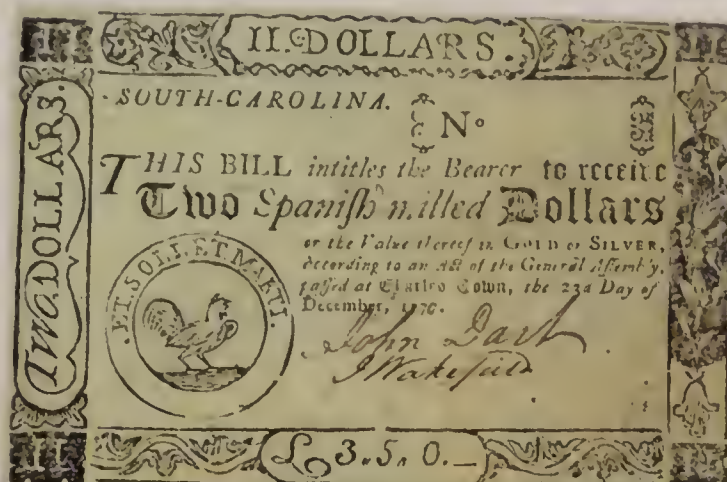 II. DOLLARS.
TWO DOLLARS.
SOUTH-CAROLINA.
No
THIS BILL intitles the Bearer to receive
Two Spanish milled Dollars
or the Value thereof in GOLD or SILVER,
according to an Act of the General Assembly,
passed at Charles Town, the 23d Day of
December, 1776.
ET SOLI ET MARTI.
John Dart
J Wakefield
£ 3. 5. 0.